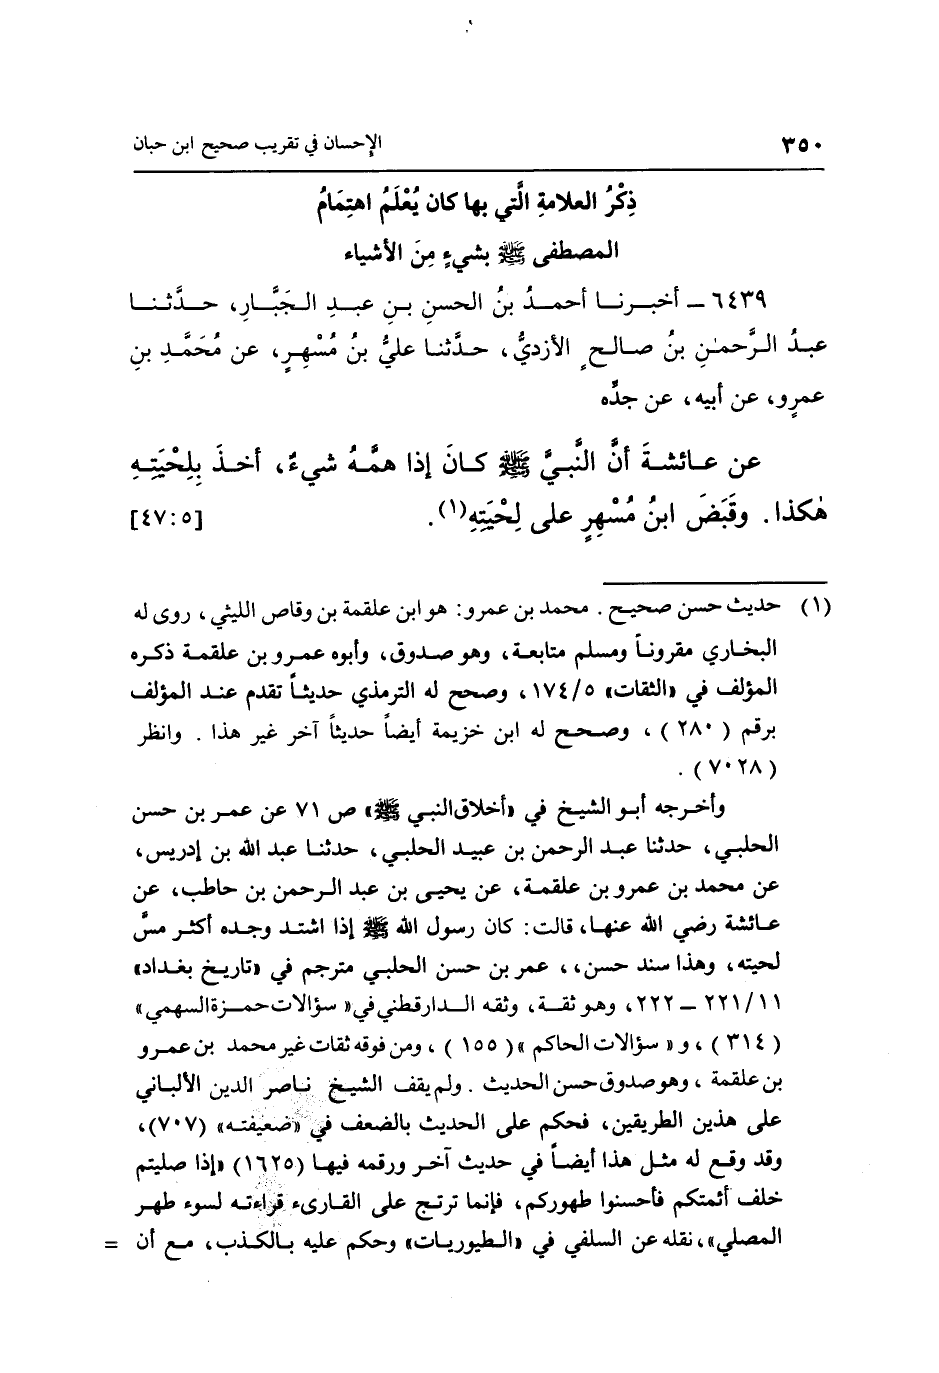 ٣٥٠ الإحسان في تقريب صحيح ابن حبان
ذِكْرُ العلامةِ الَّتي بها كان يُعْلَمُ اهتِمَامُ
المصطفى ﷺ بشيءٍ مِنَ الأشياء
٦٤٣٩ ـ أخبرنا أحمدُ بنُ الحسنِ بنِ عبدِ الجَبَّارِ، حدَّثنا
عبدُ الرَّحمٰنِ بنُ صالحٍ الأزديُّ، حدَّثنا عليُّ بنُ مُسْهِرٍ، عن مُحَمَّدِ بنِ
عمرٍو، عن أبيه، عن جدِّه
عن عائشةَ أنَّ النَّبيَّ ﷺ كانَ إذا همَّهُ شيءٌ، أخذَ بِلِحْيَتِهِ
هٰكذا. وقَبَضَ ابنُ مُسْهِرٍ على لِحْيَتِهِ(١). [٤٧:٥]
(١) حديث حسن صحيح. محمد بن عمرو: هو ابن علقمة بن وقاص الليثي، روى له
البخاري مقروناً ومسلم متابعة، وهو صدوق، وأبوه عمرو بن علقمة ذكره
المؤلف في «الثقات» ١٧٤/٥، وصحح له الترمذي حديثاً تقدم عند المؤلف
برقم (٢٨٠)، وصحح له ابن خزيمة أيضاً حديثاً آخر غير هذا. وانظر
(٧٠٢٨).
وأخرجه أبو الشيخ في «أخلاق النبي ﷺ» ص ٧١ عن عمر بن حسن
الحلبي، حدثنا عبد الرحمن بن عبيد الحلبي، حدثنا عبد الله بن إدريس،
عن محمد بن عمرو بن علقمة، عن يحيى بن عبد الرحمن بن حاطب، عن
عائشة رضي الله عنها، قالت: كان رسول الله ﷺ إذا اشتد وجده أكثر مسَّ
لحيته، وهذا سند حسن،، عمر بن حسن الحلبي مترجم في «تاريخ بغداد»
٢٢١/١١ ـ ٢٢٢، وهو ثقة، وثقه الدارقطني في «سؤالات حمزة السهمي»
(٣١٤)، و«سؤالات الحاكم» (١٥٥)، ومن فوقه ثقات غير محمد بن عمرو
بن علقمة، وهو صدوق حسن الحديث. ولم يقف الشيخ ناصر الدين الألباني
على هذين الطريقين، فحكم على الحديث بالضعف في «ضعيفته» (٧٠٧)،
وقد وقع له مثل هذا أيضاً في حديث آخر ورقمه فيها (١٦٢٥) «إذا صليتم
خلف أئمتكم فأحسنوا طهوركم، فإنما ترتج على القارىء قراءته لسوء طهر
المصلي»، نقله عن السلفي في «الطيوريات» وحكم عليه بالكذب، مع أن =